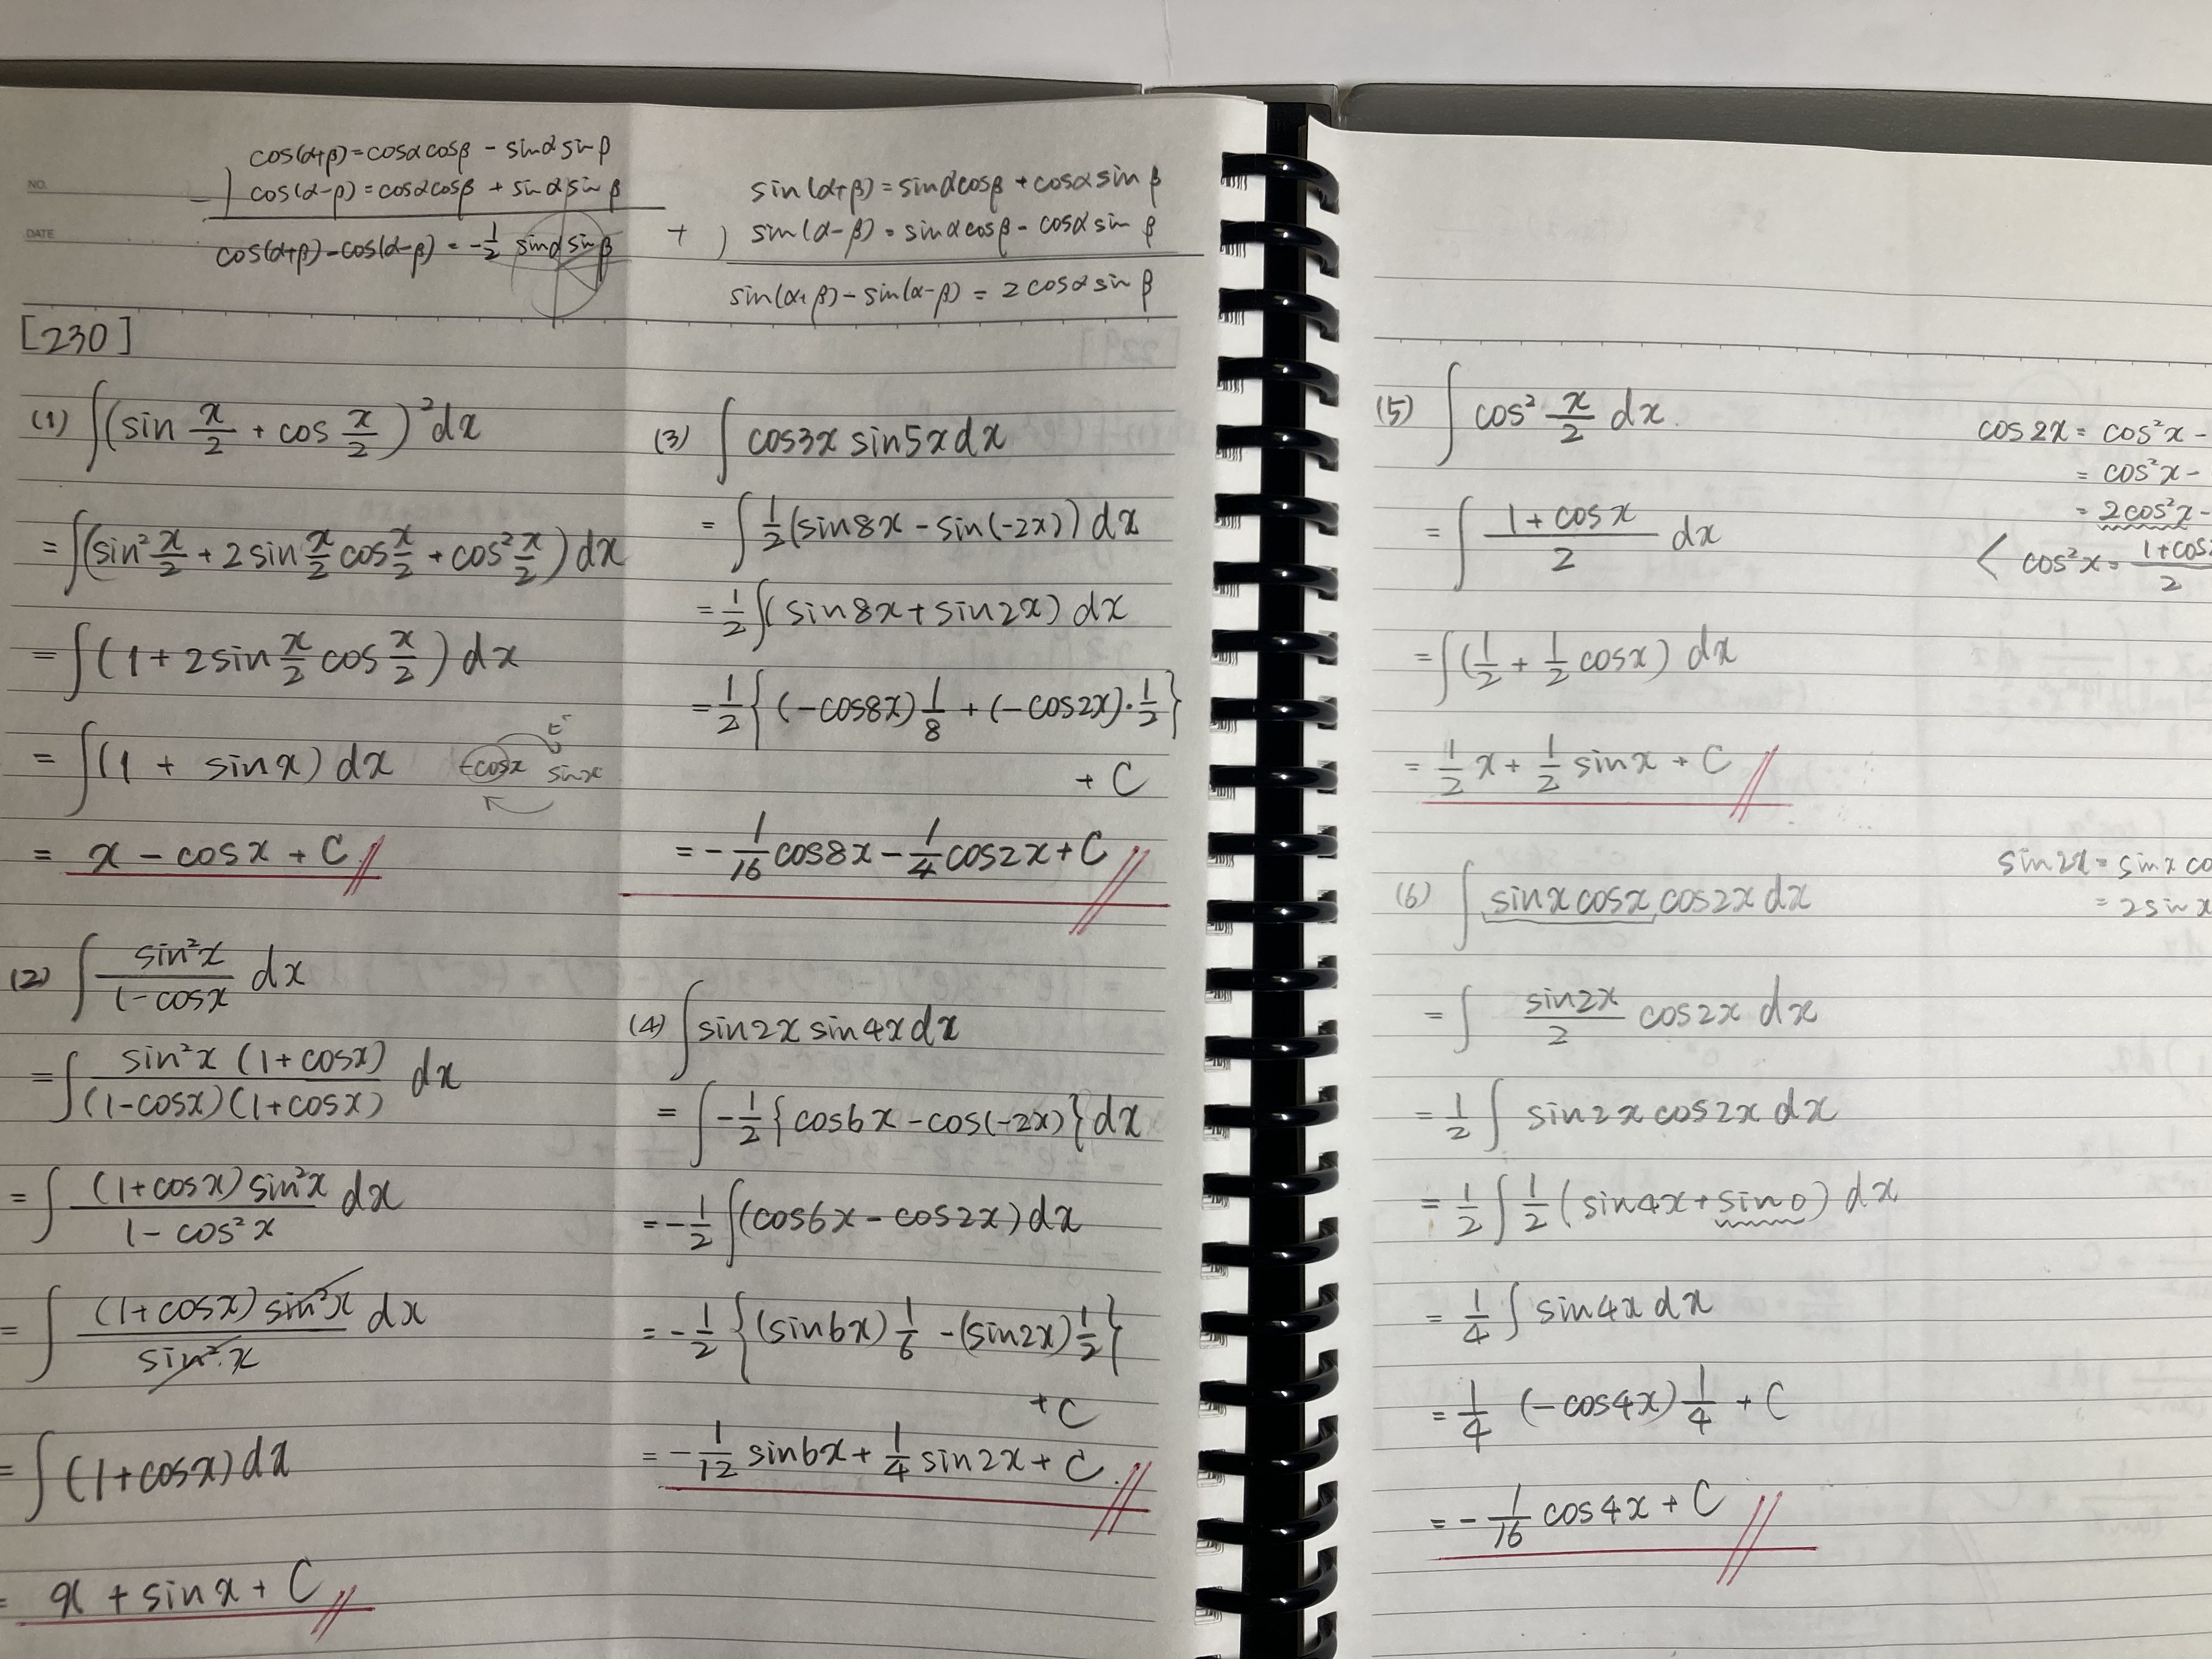 NO.
DATE
cos(α+β)=cosαcosβ - sinαsinβ
-) cos(α-β)=cosαcosβ + sinαsinβ
cos(α+β)-cos(α-β) = -1/2 sinαsinβ
sin(α+β)=sinαcosβ+cosαsinβ
+) sin(α-β)=sinαcosβ-cosαsinβ
sin(α+β)-sin(α-β) = 2cosαsinβ
[230]
(1) ∫(sin x/2 + cos x/2)²dx
= ∫(sin² x/2 + 2sin x/2 cos x/2 + cos² x/2)dx
= ∫(1+2sin x/2 cos x/2)dx
= ∫(1 + sinx)dx
-cosx sinx
= x - cosx + C
(2) ∫ sin²x/(1-cosx) dx
= ∫ sin²x(1+cosx)/((1-cosx)(1+cosx)) dx
= ∫ (1+cosx)sin²x/(1-cos²x) dx
= ∫ (1+cosx)sin²x/sin²x dx
= ∫(1+cosx)dx
= x + sinx + C
(3) ∫ cos3x sin5x dx
= ∫ 1/2(sin8x - sin(-2x)) dx
= 1/2 ∫(sin8x + sin2x) dx
= 1/2 {(-cos8x) 1/8 + (-cos2x)・1/2}
+ C
= - 1/16 cos8x - 1/4 cos2x + C
(4) ∫ sin2x sin4x dx
= ∫ - 1/2 {cos6x - cos(-2x)} dx
= - 1/2 ∫(cos6x - cos2x) dx
= - 1/2 {(sin6x) 1/6 - (sin2x) 1/2}
+ C
= - 1/12 sin6x + 1/4 sin2x + C.
(5) ∫ cos² x/2 dx.
= ∫ (1+cosx)/2 dx
= ∫(1/2 + 1/2 cosx) dx
= 1/2 x + 1/2 sinx + C
cos2x = cos²x -
= cos²x -
= 2cos²x -
cos²x = 1+cos
2
(6) ∫ sinxcosx cos2x dx
= ∫ sin2x/2 cos2x dx
= 1/2 ∫ sin2x cos2x dx
= 1/2 ∫ 1/2 (sin4x + sin0) dx
= 1/4 ∫ sin4x dx
= 1/4 (-cos4x) 1/4 + C
= - 1/16 cos4x + C
sin2x = sinx co
= 2sinx